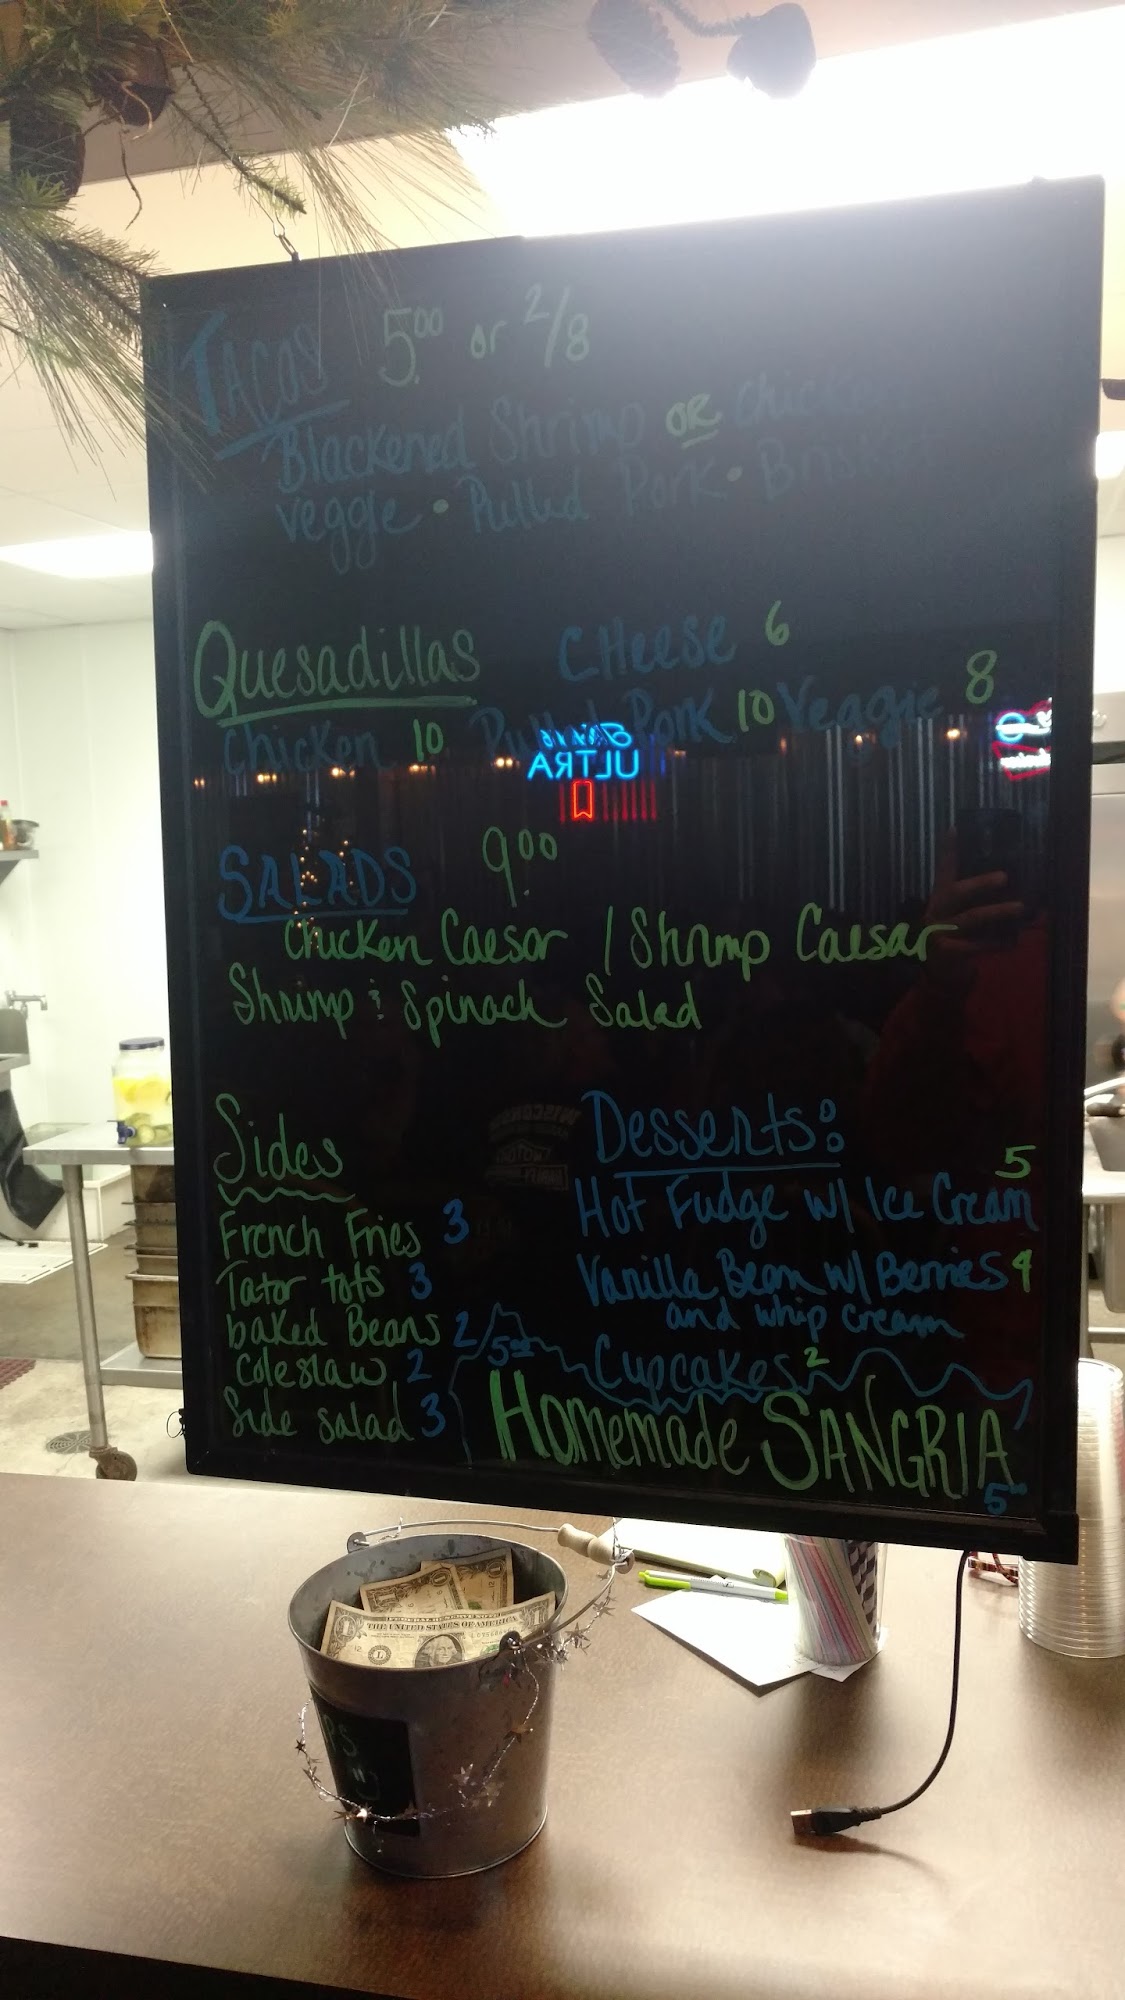 TACOS 5.00 or 2/8
Blackened Shrimp OR Chicken
veggie • Pulled Pork • Brisket
Quesadillas CHeese 6
Chicken 10 Pulled Pork 10 Veggie 8
ULTRA
SALADS 9.00
Chicken Caesar / Shrimp Caesar
Shrimp & Spinach Salad
Sides
French Fries 3
Tator tots 3
baked Beans 2
Coleslaw 2
Side salad 3
Desserts:
5
Hot Fudge w/ Ice Cream
Vanilla Bean w/ Berries 4
and whip cream
Cupcakes 2
5.00
Homemade SANGRIA
5.00
FEDERAL RESERVE NOTE
THE UNITED STATES OF AMERICA